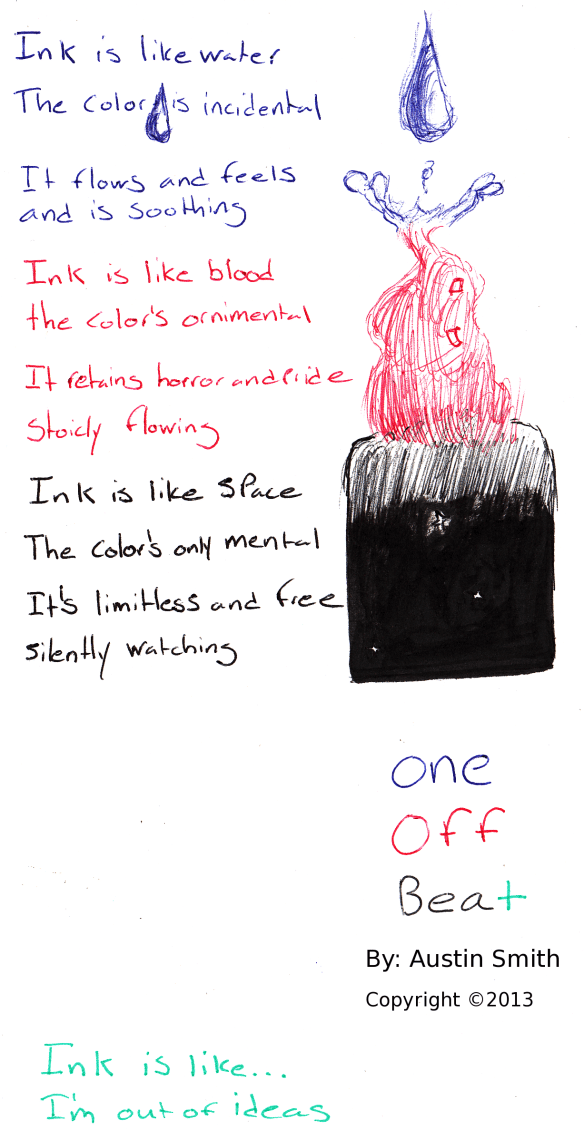 Ink is like water
The color is incidental
It flows and feels
and is soothing
Ink is like blood
the color's ornimental
It retains horror and pride
Stoicly flowing
Ink is like space
The color's only mental
It's limitless and free
silently watching
One
Off
Beat
By: Austin Smith
Copyright ©2013
Ink is like...
I'm out of ideas